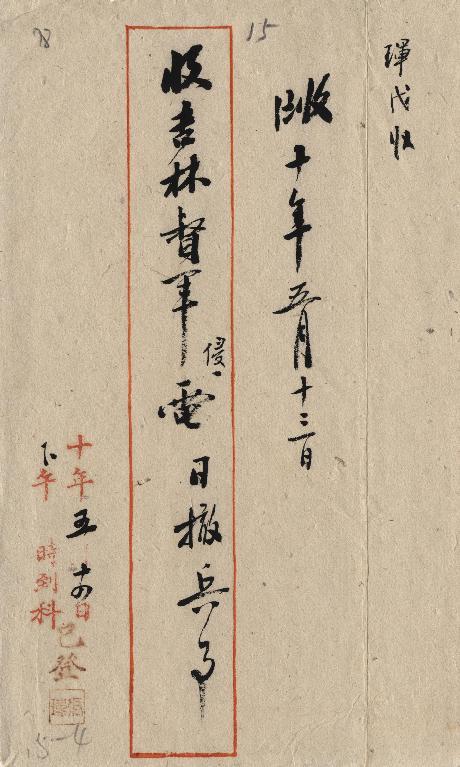 15
琿戌收
收十年五月十三日
收吉林督軍侵電 日撤兵事
十年五月十四日
下午 時到科
已登
15-4